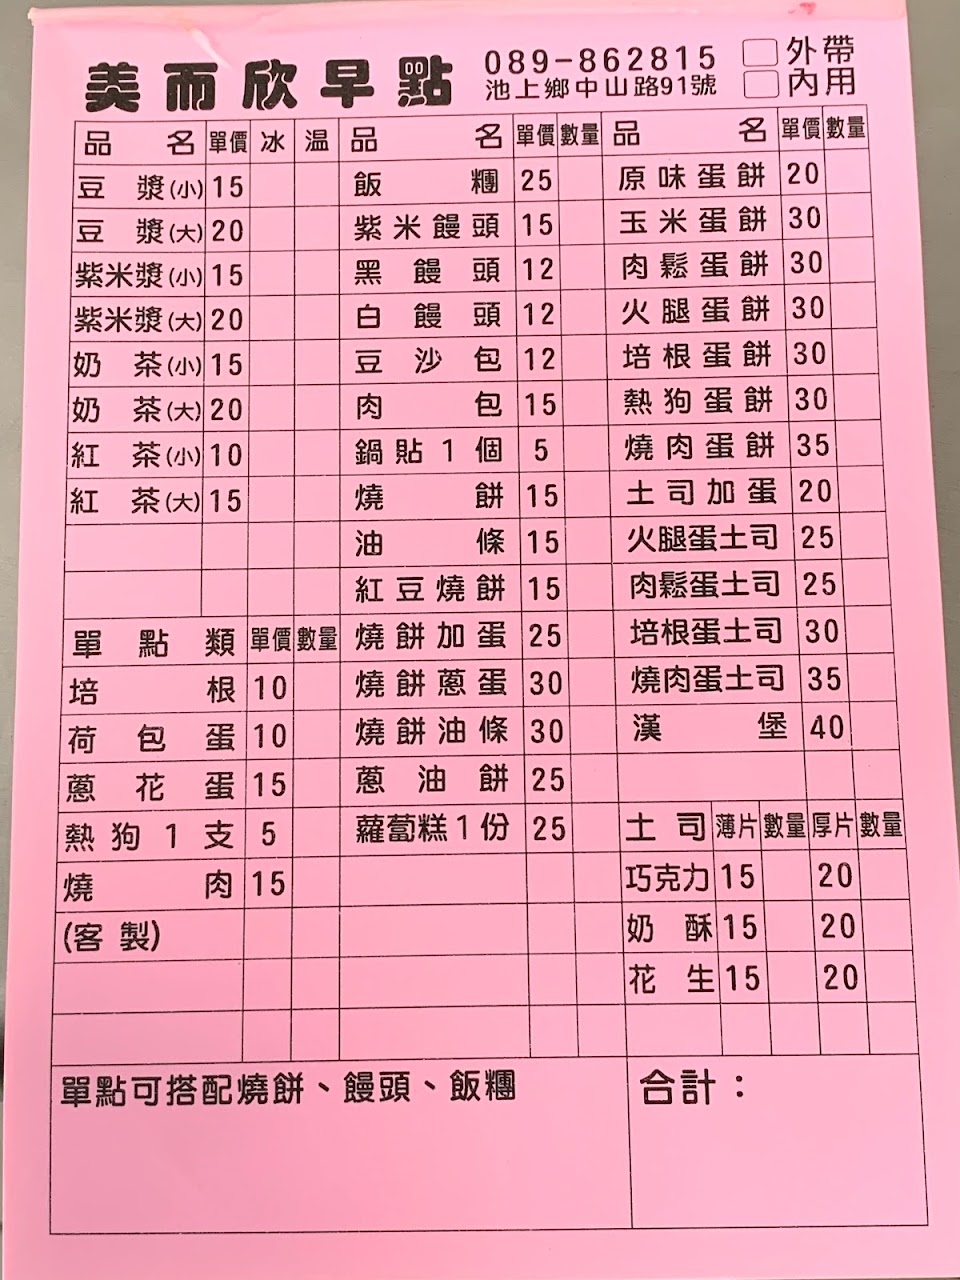 美而欣早點
089-862815
池上鄉中山路91號
外帶
內用
品名 單價 冰 温 品名 單價 數量 品名 單價 數量
豆漿(小) 15 飯糰 25 原味蛋餅 20
豆漿(大) 20 紫米饅頭 15 玉米蛋餅 30
紫米漿(小) 15 黑饅頭 12 肉鬆蛋餅 30
紫米漿(大) 20 白饅頭 12 火腿蛋餅 30
奶茶(小) 15 豆沙包 12 培根蛋餅 30
奶茶(大) 20 肉包 15 熱狗蛋餅 30
紅茶(小) 10 鍋貼1個 5 燒肉蛋餅 35
紅茶(大) 15 燒餅 15 土司加蛋 20
油條 15 火腿蛋土司 25
紅豆燒餅 15 肉鬆蛋土司 25
單點類 單價 數量 燒餅加蛋 25 培根蛋土司 30
培根 10 燒餅蔥蛋 30 燒肉蛋土司 35
荷包蛋 10 燒餅油條 30 漢堡 40
蔥花蛋 15 蔥油餅 25
熱狗1支 5 蘿蔔糕1份 25 土司 薄片 數量 厚片 數量
燒肉 15 巧克力 15 20
(客製) 奶酥 15 20
花生 15 20
單點可搭配燒餅、饅頭、飯糰 合計：